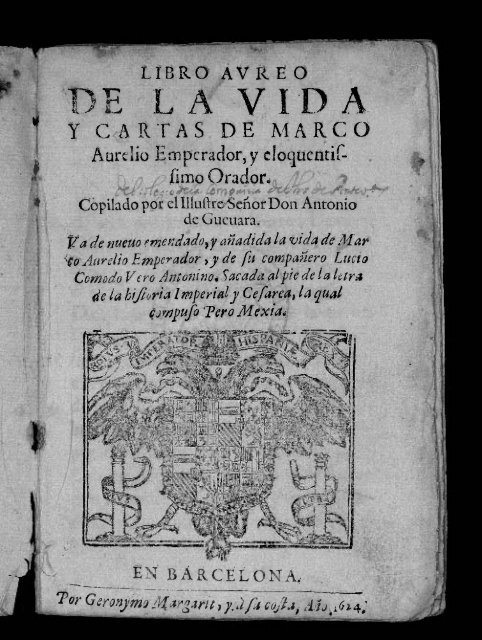 LIBRO AVREO
DE LA VIDA
Y CARTAS DE MARCO
Aurelio Emperador, y eloquentis-
simo Orador.
Copilado por el Illustre Señor Don Antonio
de Gueuara.
Va de nueuo emendado, y añadida la vida de Mar
co Aurelio Emperador, y de su compañero Lucio
Comodo Vero Antonino. Sacada al pie de la letra
de la historia Imperial y Cesarea, la qual
compuso Pero Mexia.
IMPERATOR HISPANIÆ
EN BARCELONA.
Por Geronymo Margarit, y a su costa, Año, 1624.